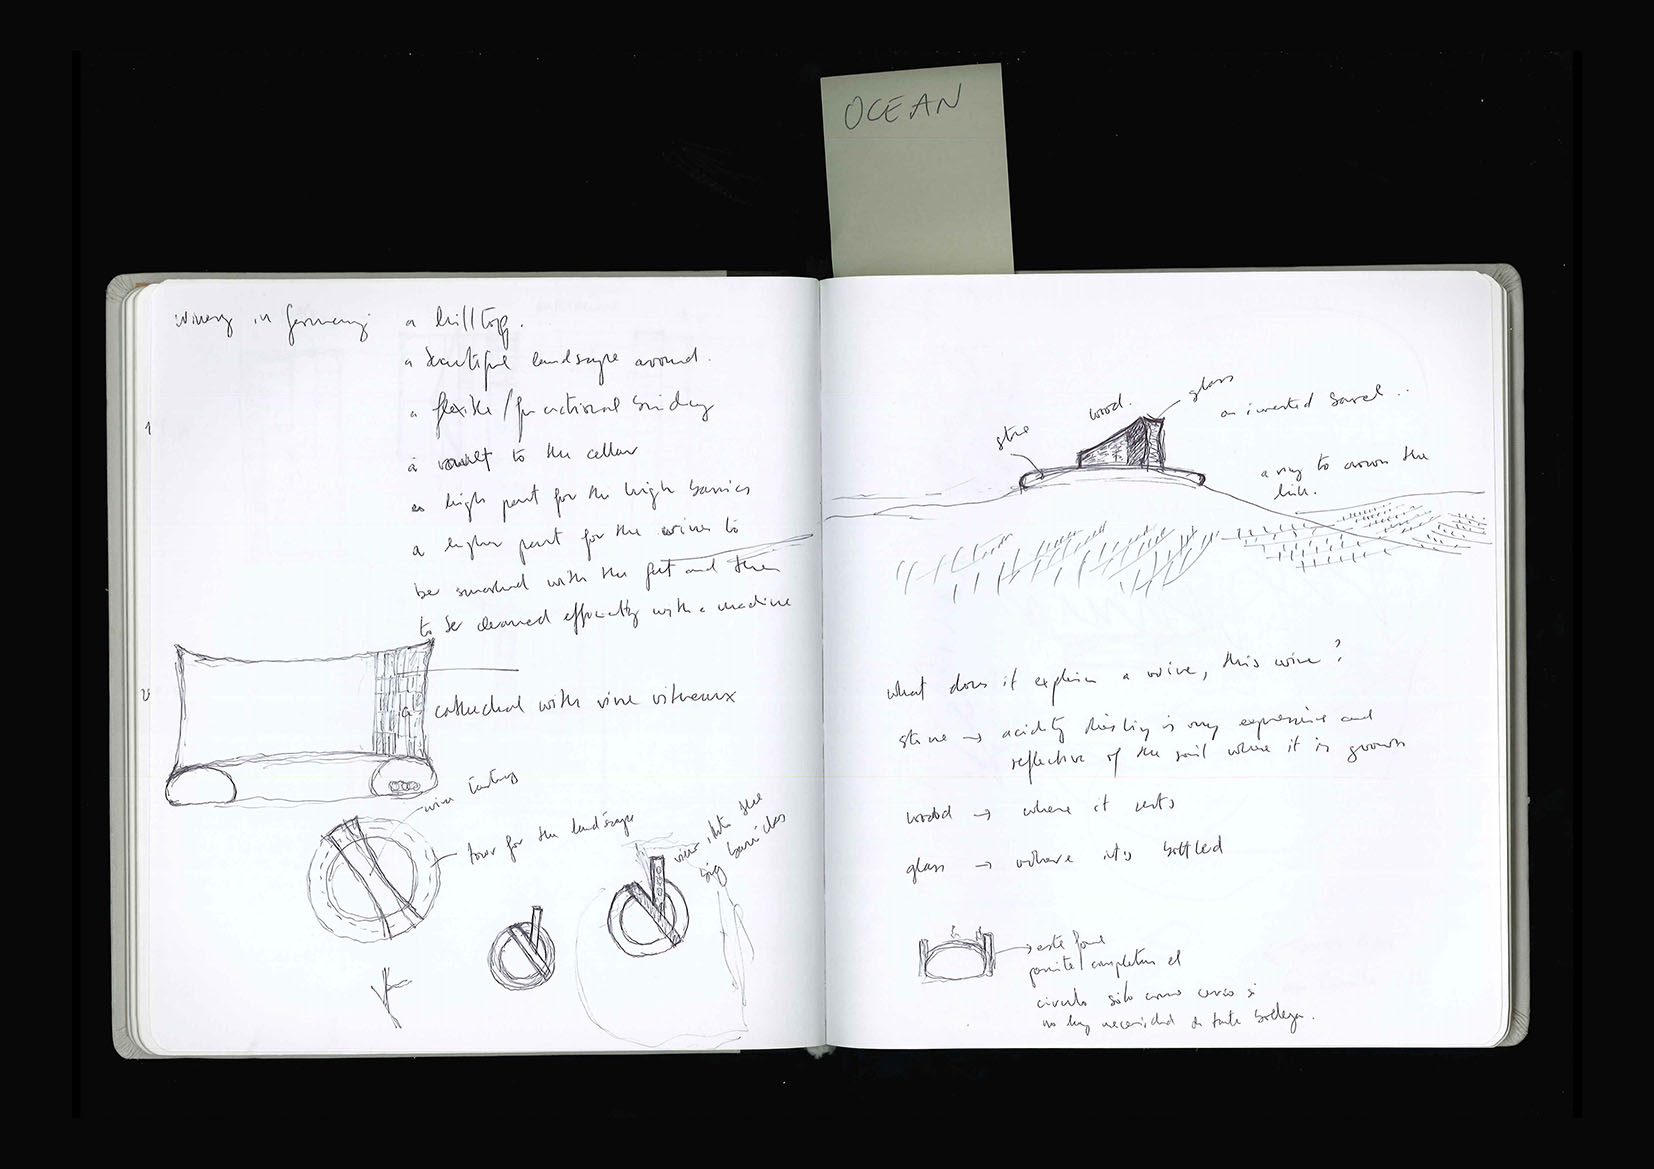 OCEAN
winery in Germany
a hilltop.
a beautiful landscape around.
a flexible / functional building
1
a vault to the cellar
a high part for the high barrics
a higher part for the wines to
be smashed with the feet and then
to be cleaned efficiently with a machine
a cathedral with vine vitreaux
wine tasting
tour for the landscape
view into the big barricles
stone
wood.
glass
an inverted barrel ..
a ring to crown the
hill.
what does it explain a wine, this wine?
stone → acidity Riesling is very expressive and
reflective of the soil where it is grown
wood → where it rests
glass → where its bottled
→ este forma
permite completar el
circulo sólo como cerco si
no hay necesidad de tanta bodega.